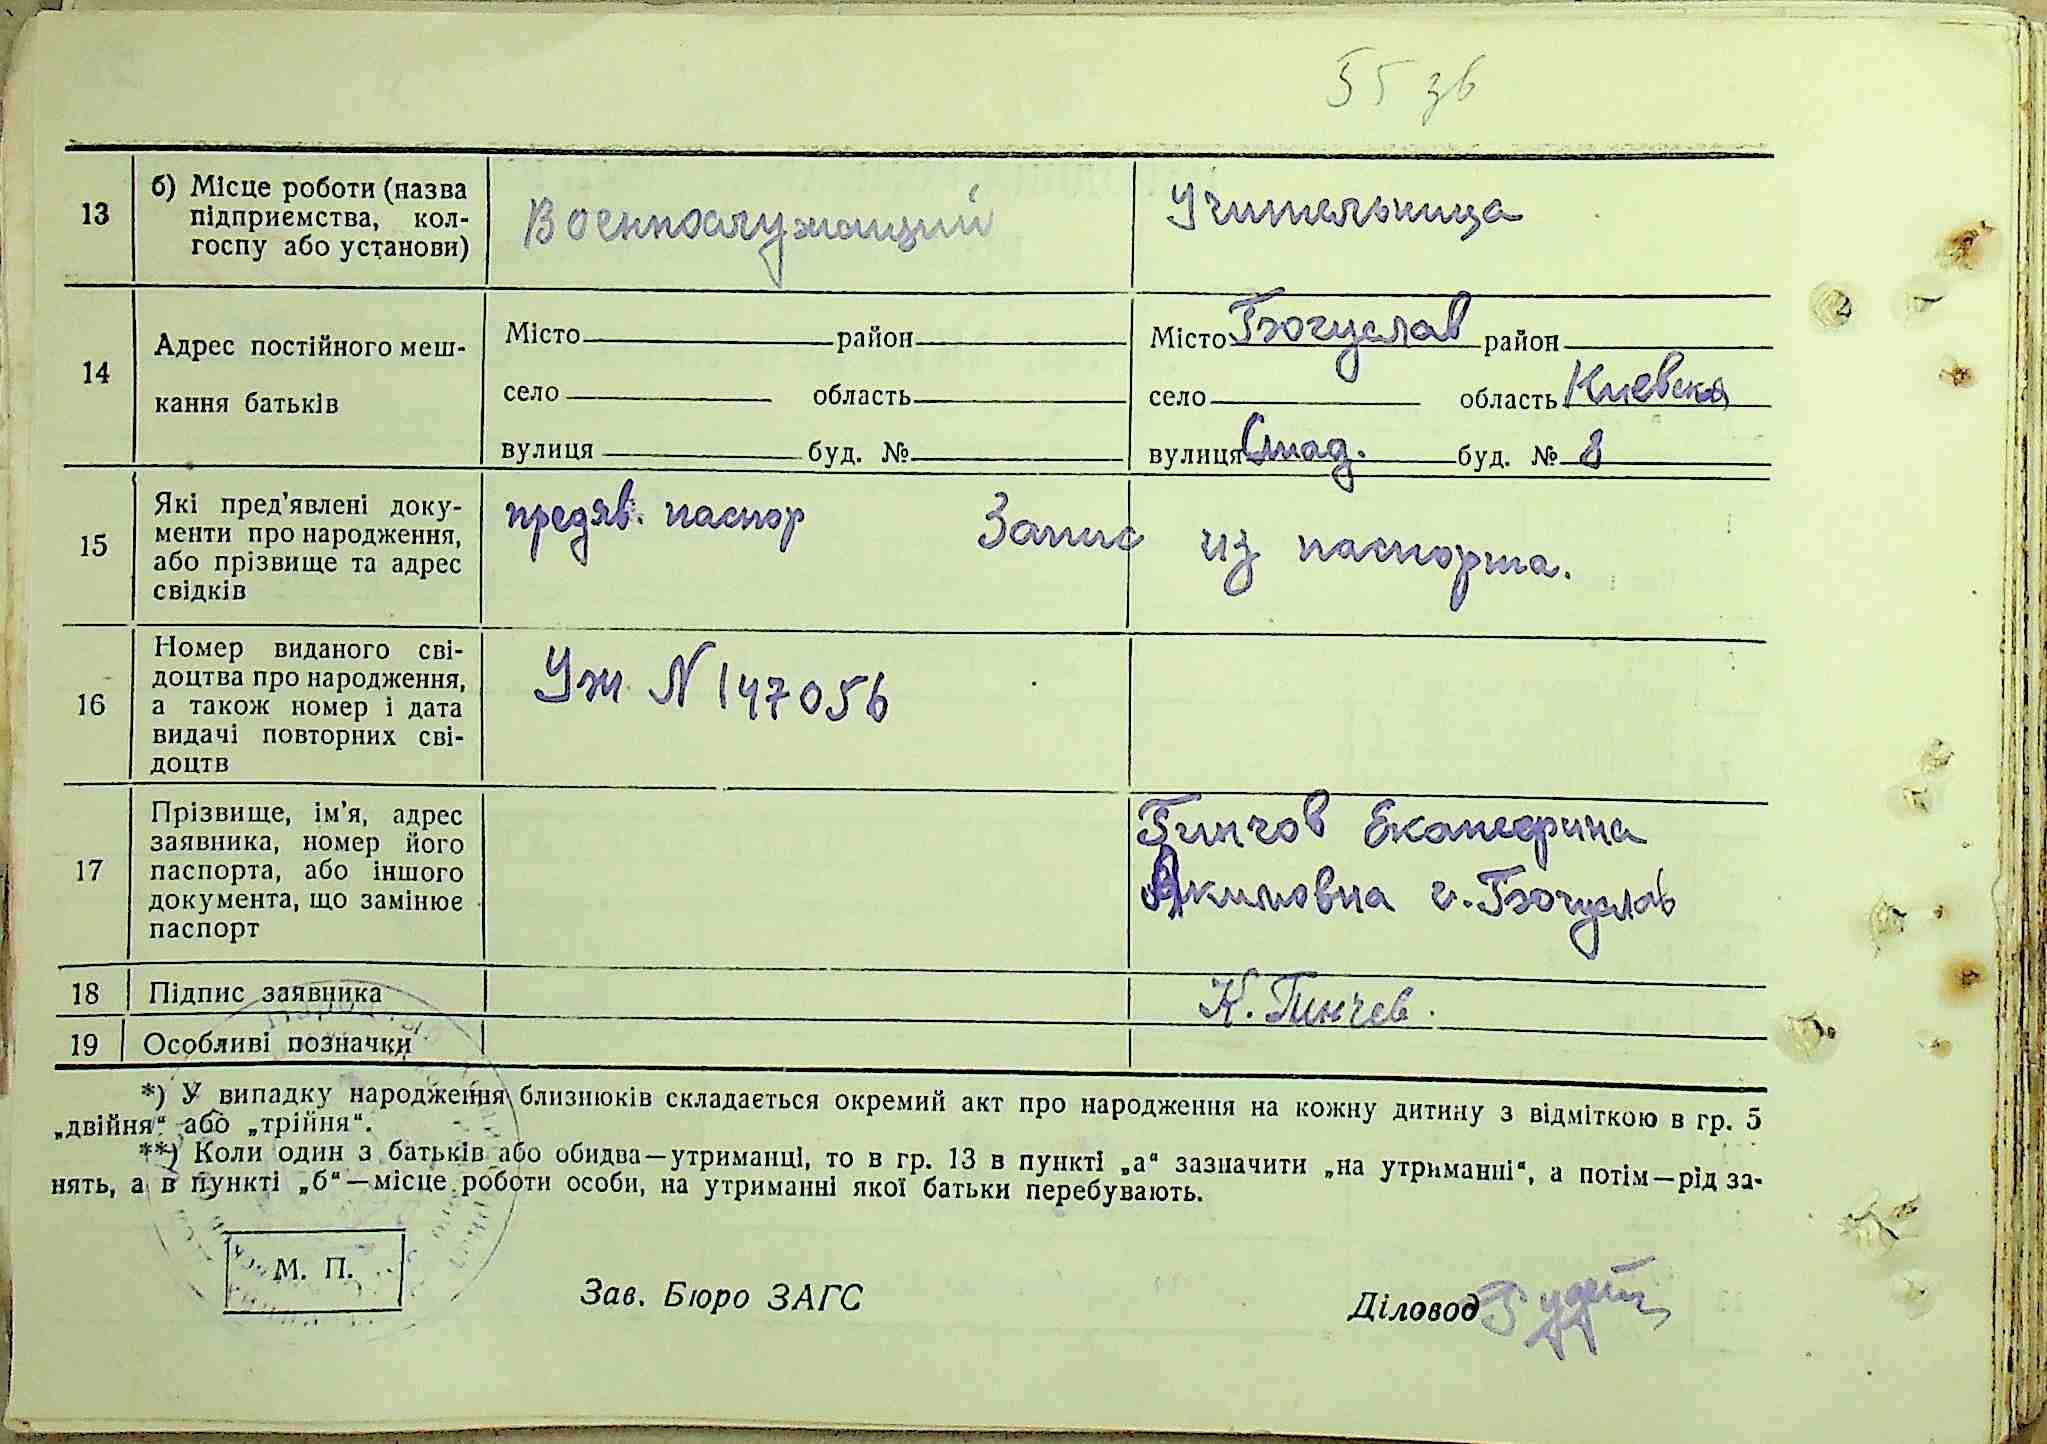 55 зв
13
б) Місце роботи (назва
підприємства, кол-
госпу або установи)
Военнослужащий
Учительница
14
Адрес постійного меш-
кання батьків
Місто район
село область
вулиця буд. №
Місто Богуслав район
село область Киевска
вулиця буд. № 8
15
Які пред'явлені доку-
менти про народження,
або прізвище та адрес
свідків
предяв. паспор Запис из паспорта.
16
Номер виданого сві-
доцтва про народження,
а також номер і дата
видачі повторних сві-
доцтв
Уж N 147056
17
Прізвище, ім'я, адрес
заявника, номер його
паспорта, або іншого
документа, що замінює
паспорт
Гинчов Екатерина
Акимовна г. Богуслав
18 Підпис заявника
К. Гинчев.
19 Особливі позначки
*) У випадку народження близнюків складається окремий акт про народження на кожну дитину з відміткою в гр. 5
„двійня“ або „трійня“.
**) Коли один з батьків або обидва—утриманці, то в гр. 13 в пункті „а“ зазначити „на утриманні“, а потім—рід за-
нять, а в пункті „б“—місце роботи особи, на утриманні якої батьки перебувають.
М. П.
Зав. Бюро ЗАГС
Діловод